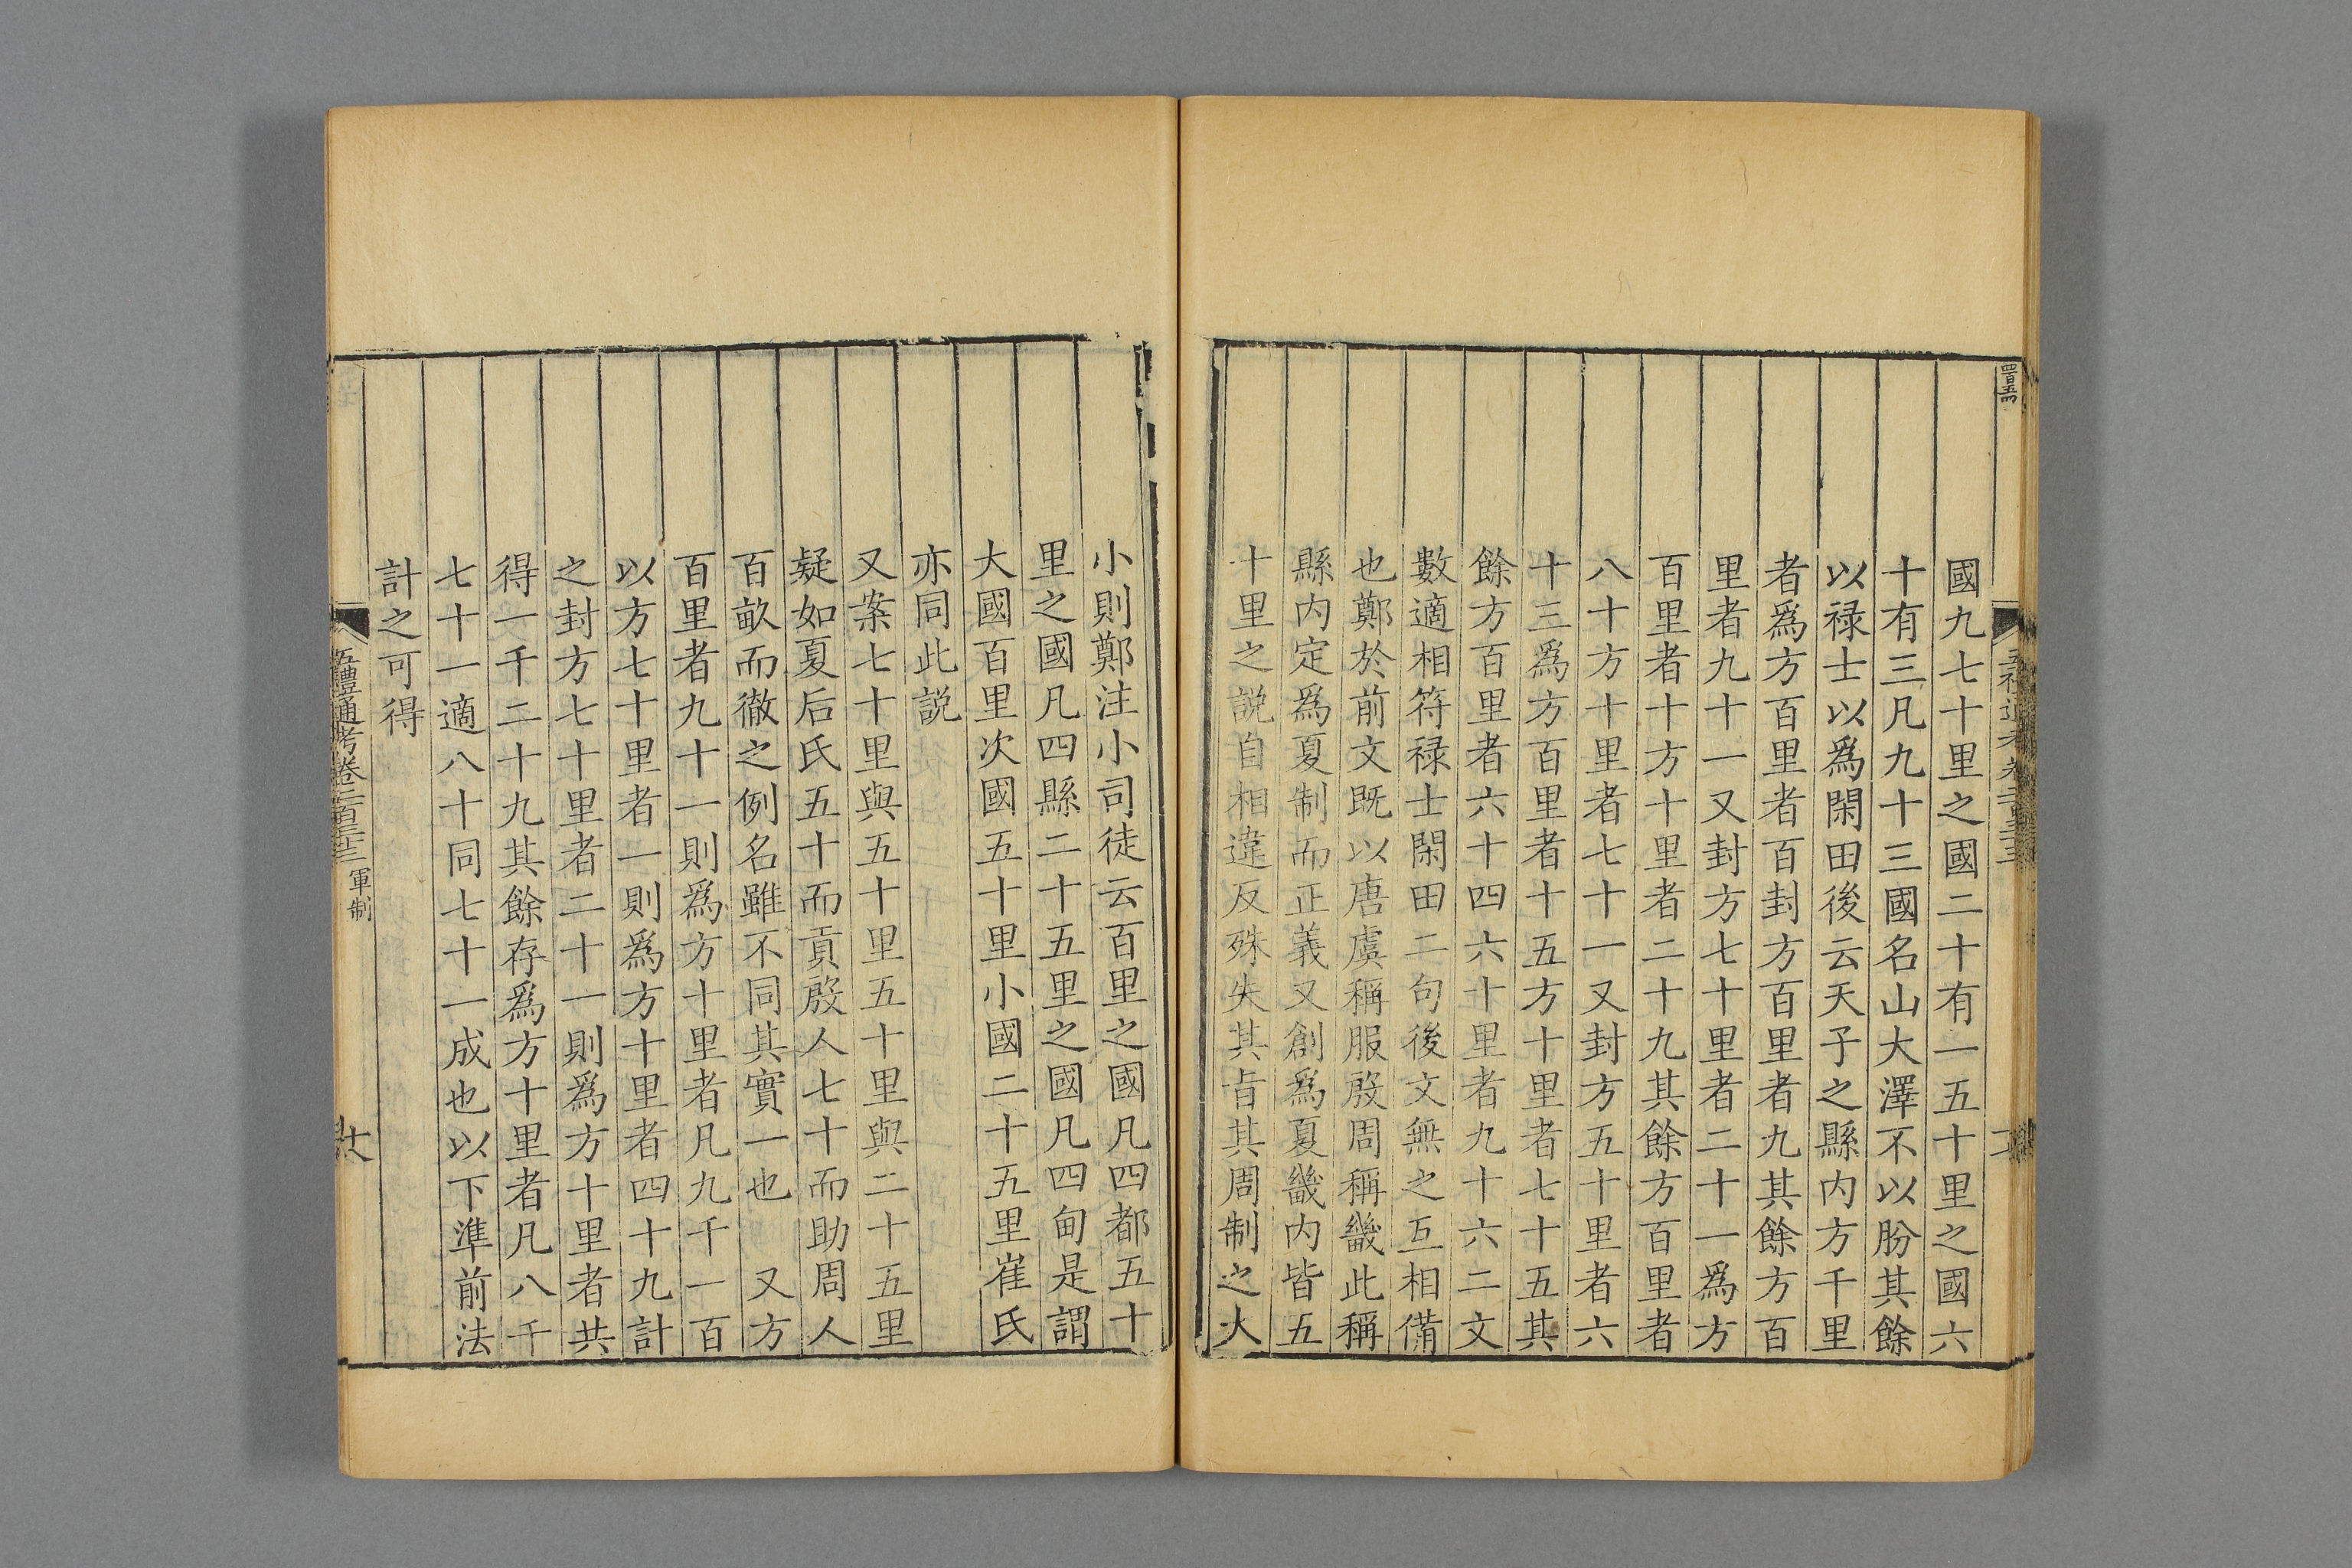 國九七十里之國二十有一五十里之國六
十有三凡九十三國名山大澤不以朌其餘
以禄士以爲閑田後云天子之縣内方千里
者爲方百里者百封方百里者九其餘方百
里者九十一又封方七十里者二十一爲方
百里者十方十里者二十九其餘方百里者
八十方十里者七十一又封方五十里者六
十三爲方百里者十五方十里者七十五其
餘方百里者六十四六十里者九十六二文
數適相符禄士閑田二句後文無之互相備
也鄭於前文既以唐虞稱服殷周稱畿此稱
縣内定爲夏制而正義又創爲夏畿内皆五
十里之説自相違反殊失其㫖其周制之大
小則鄭注小司徒云百里之國凡四都五十
里之國凡四縣二十五里之國凡四甸是謂
大國百里次國五十里小國二十五里崔氏
亦同此説
又案七十里與五十里五十里與二十五里
疑如夏后氏五十而貢殷人七十而助周人
百畝而徹之例名雖不同其實一也 又方
百里者九十一則爲方十里者凡九千一百
以方七十里者一則爲方十里者四十九計
之封方七十里者二十一則爲方十里者共
得一千二十九其餘存爲方十里者凡八千
七十一適八十同七十一成也以下準前法
計之可得
五禮通考卷二百三十三 軍制